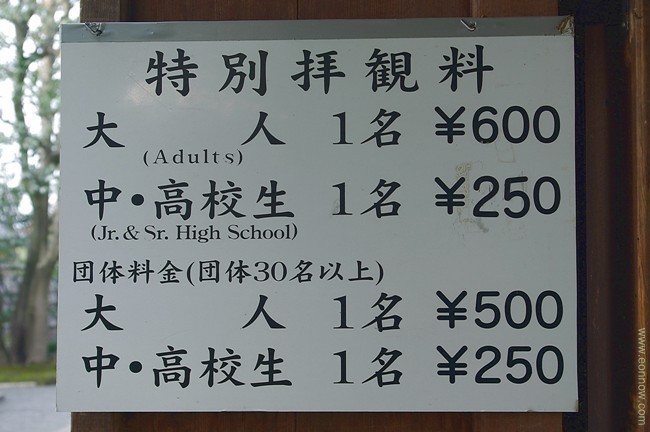 特別拝観料
大人 1名 ¥600
(Adults)
中・高校生 1名 ¥250
(Jr. & Sr. High School)
団体料金(団体30名以上)
大人 1名 ¥500
中・高校生 1名 ¥250
www.eonnow.com